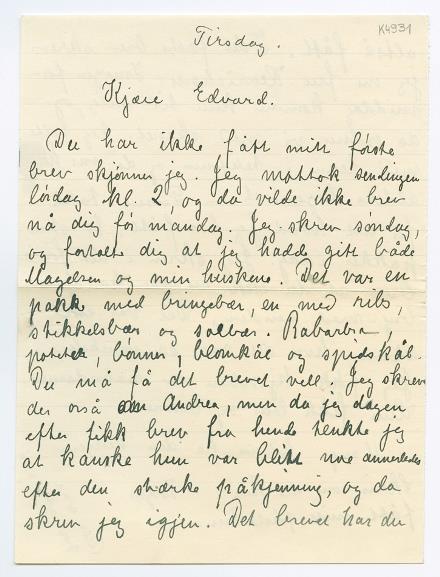 K4931
Tirsdag.
Kjære Edvard.
Du har ikke fått mitt første
brev skjønner jeg. Jeg mottok sendingen
lørdag kl. 2, og da vilde ikke brev
nå dig før mandag. Jeg skrev søndag,
og fortalte dig at jeg hadde gitt både
og min huskone. Det var en
pakk med bringebær, en med ribs,
stikkelsbær og solbær. Rabarbra,
poteter, bønner, blomkål og spidskål.
Du må få det brevet vell. Jeg skrev
der også om Andrea, men da jeg dagen
efter fikk brev fra hende tenkte jeg
at kanske hun var blitt noe annerledes
efter den stærke påkjenning, og da
skrev jeg igjen. Det brevet har du